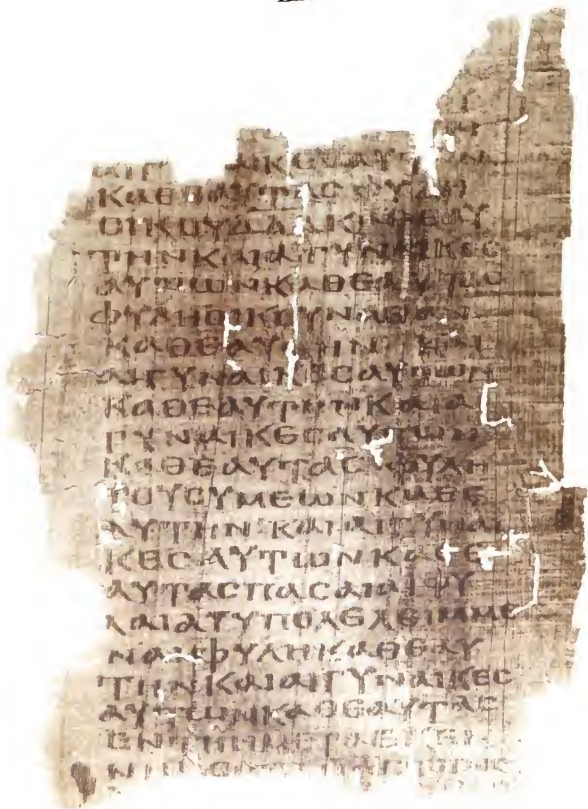 ΚΑΘΕΑΥΤΑϹ ΦΥΛΗ
ΟΙΚΟΥΔΑΔΚΑΘΕΑΥ
ΤΗΝΚΑΙΑΙΓΥΝΑΙΚΕϹ
ΑΥΤΩΝΚΑΘΕΑΥΤΑϹ
ΦΥΛΗΟΙΚΟΥΝΑΘΑΝ
ΚΑΘΕΑΥΤΗΝΚΑΙ
ΑΙΓΥΝΑΙΚΕϹΑΥΤΩΝ
ΚΑΘΕΑΥΤΗΝΚΑΙΑΙ
ΓΥΝΑΙΚΕϹΑΥΤΩΝ
ΚΑΘΕΑΥΤΑϹ ΦΥΛΗ
ΤΟΥϹΥΜΕΩΝΚΑΘΕ
ΑΥΤΗΝΚΑΙΑΙΓΥΝΑΙ
ΚΕϹΑΥΤΩΝΚΑΘΕ
ΑΥΤΑϹΠΑϹΑΙΑΙΦΥ
ΛΑΙΑΙΥΠΟΛΕΛΕΙΜΜΕ
ΝΑΙΦΥΛΗΚΑΘΕΑΥ
ΤΗΝΚΑΙΑΙΓΥΝΑΙΚΕϹ
ΑΥΤΩΝΚΑΘΕΑΥΤΑϹ
ΕΝΤΗΗΜΕΡΑΕΚΕΙ
ΝΗ